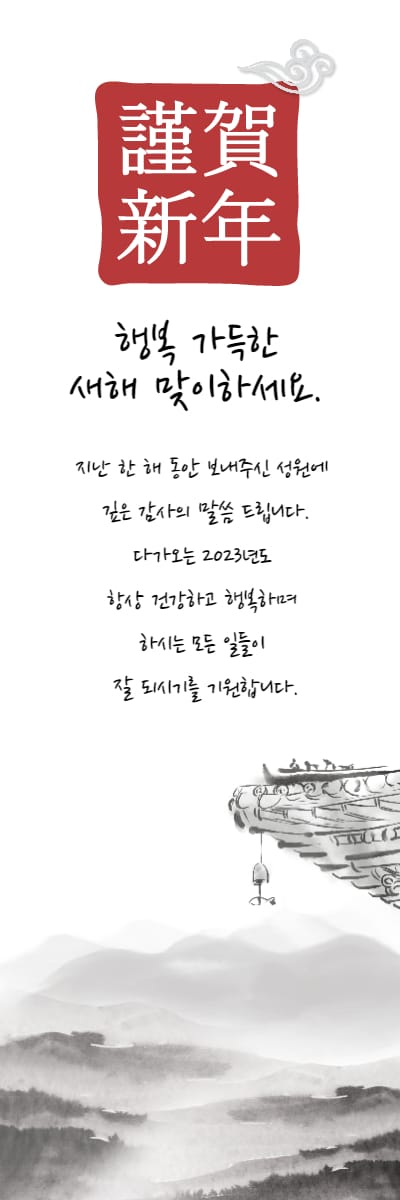 謹賀
新年
행복 가득한
새해 맞이하세요.
지난 한 해 동안 보내주신 성원에
깊은 감사의 말씀 드립니다.
다가오는 2023년도
항상 건강하고 행복하며
하시는 모든 일들이
잘 되시기를 기원합니다.